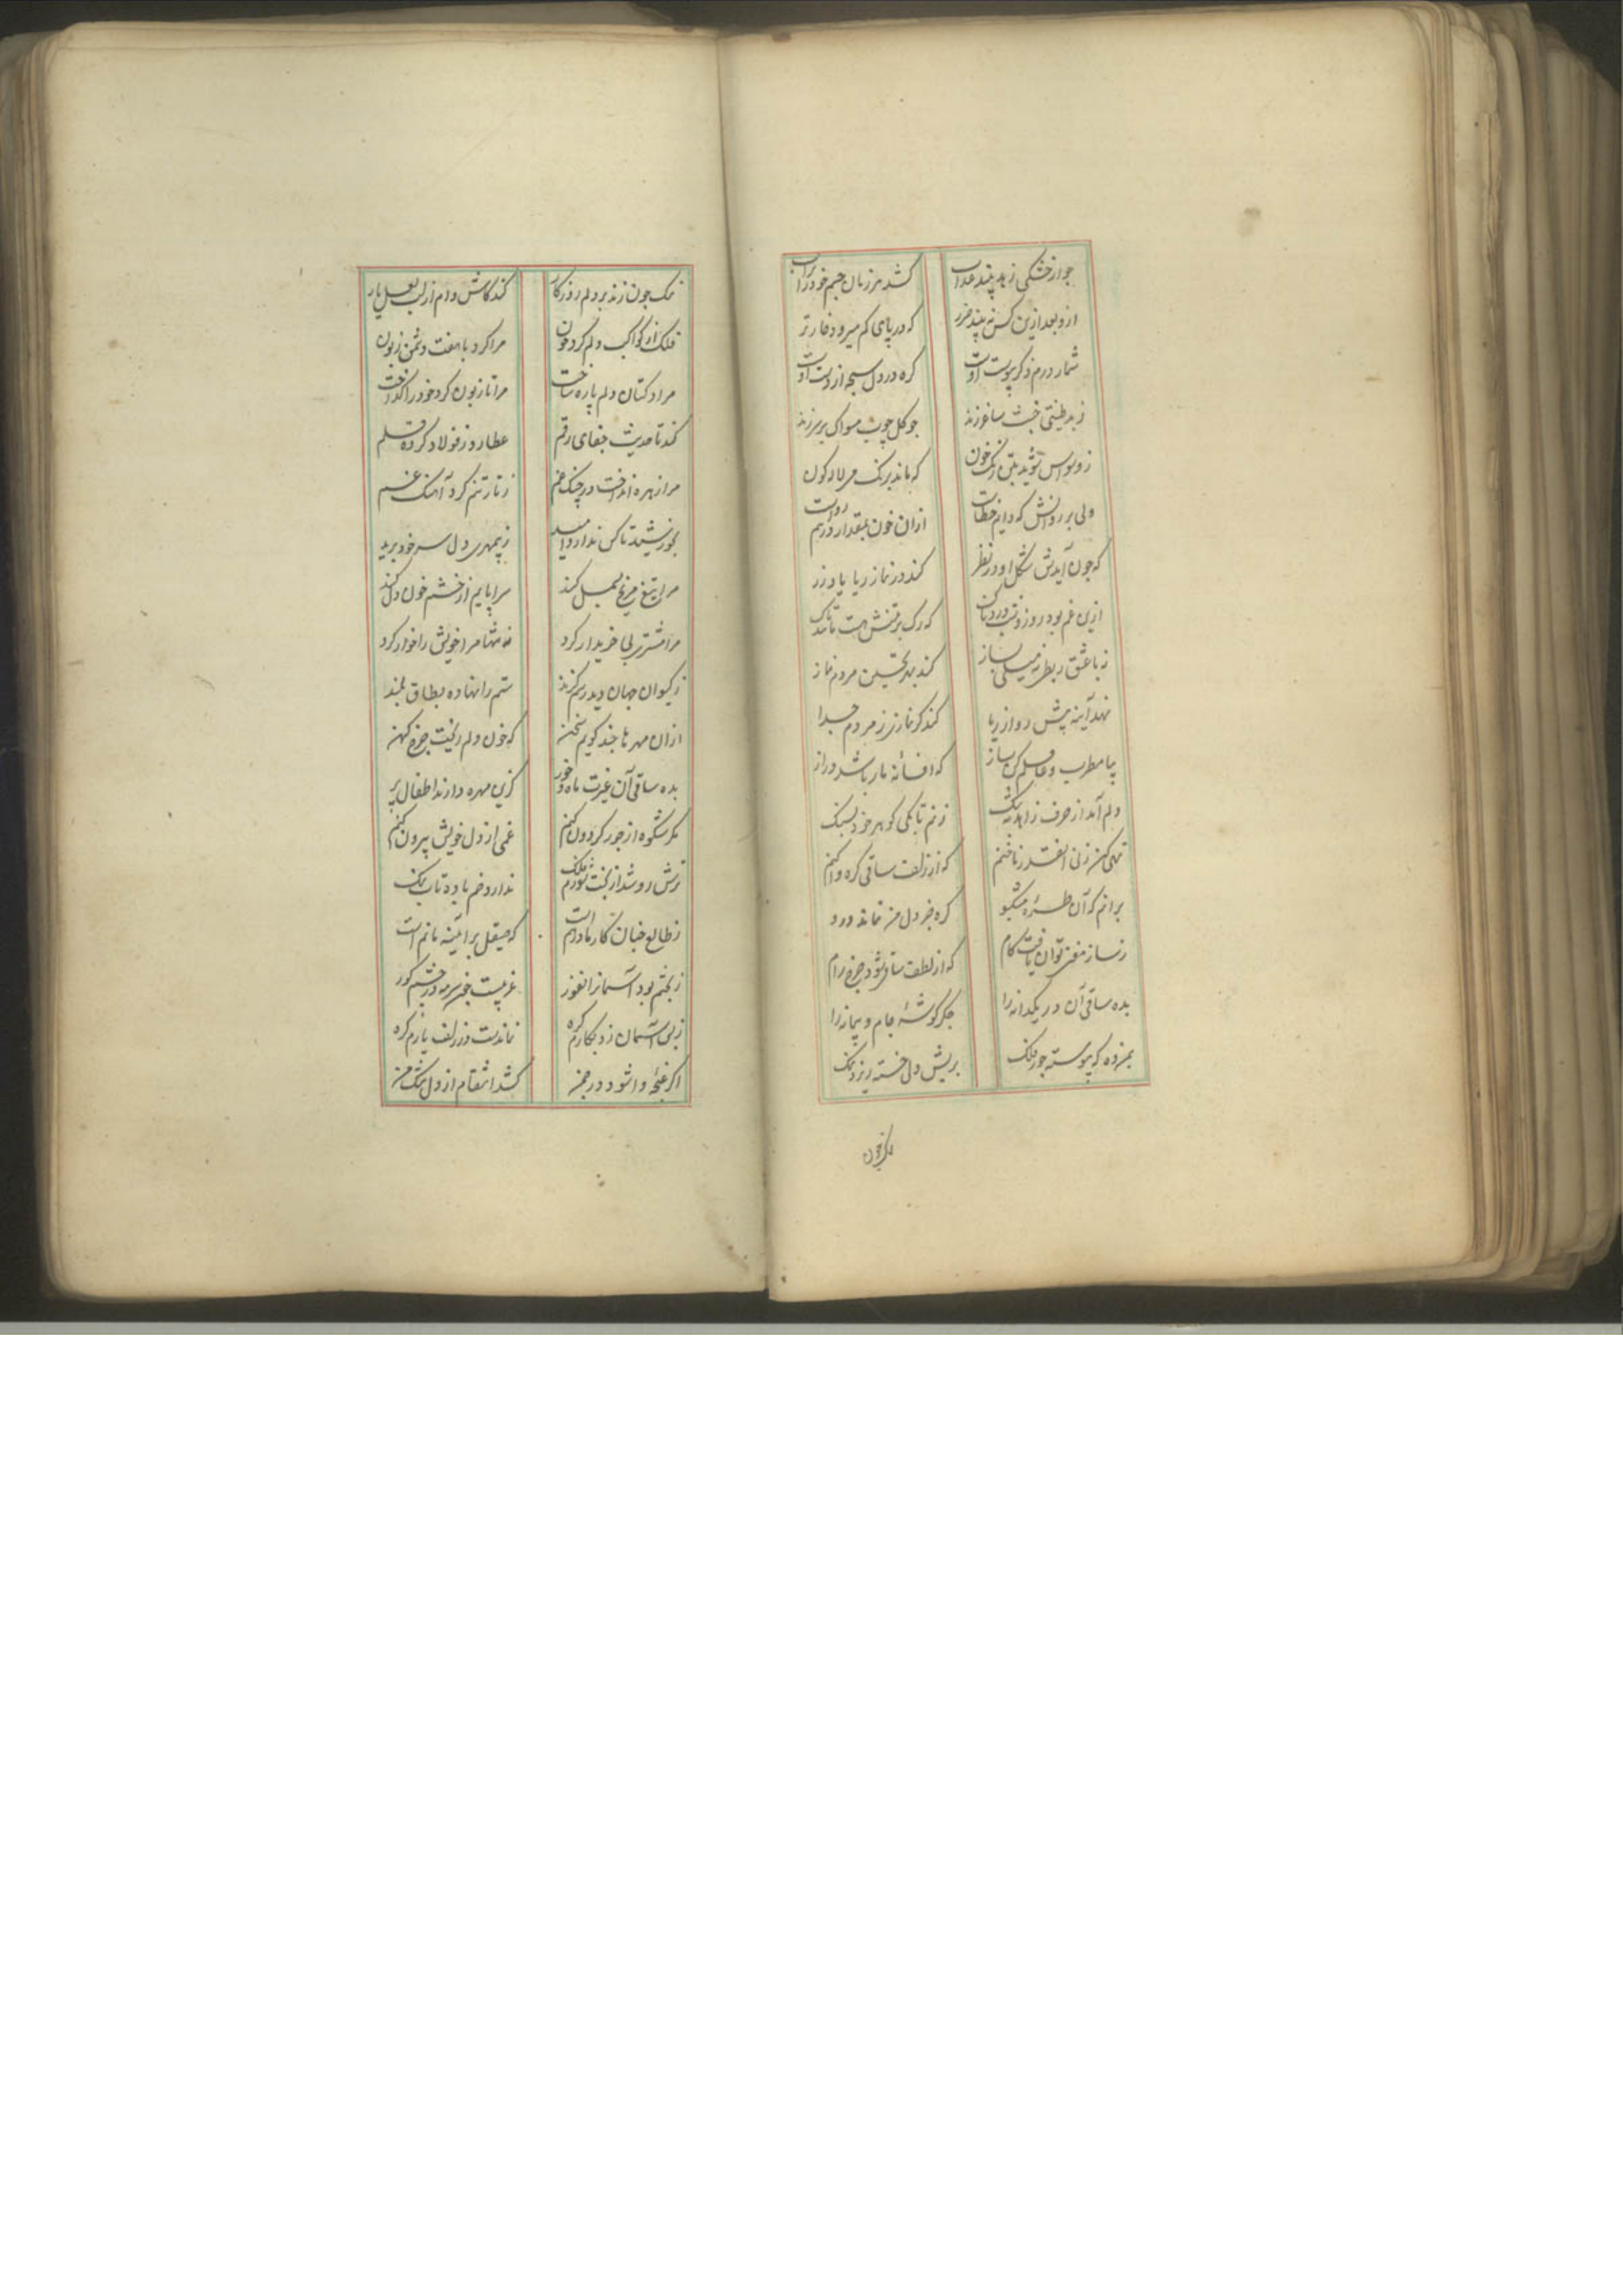 جو از خشکی زهد بیند عذاب کشد هر زمان جسم خود را بآب
ازو بعد ازین کس نه بیند ضرر که در پای کم میرود خار تر
شمار درم ذکر پیوست اوست کره در دل سبحه از دست اوست
ز بد طینتی خشت بر ساغر زند جو کل چوب مسواک بر سر زند
ز وسواس شوید بتن رنک خون که ماند برنک می لاله کون
ولی بر روانش که دایم خطاست ازان خون بمقدار درهم رواست
که جون آیدش شکل او در نظر کند در نماز ریا یاد زر
ازین غم بود روز و شب دردناک که رک بر تنش هست تا تاک
نه با عشق ربط و نه میلی بساز کند بهر تحسین مردم نماز
نهد آینه پیش رو از ریا کند کر نمازی ز مردم جدا
بیا مطرب و فاصله کن ساز که افسانه ما باشد دراز
دلم آمد از حرف زاهد به تنک زنم تا بکی کوهر خود بسنک
تهی کن زنی انقدر ناخنم که از زلف ساقی کره وا کنم
برانم که آن طره مشکبو کره جز دل من نماند درو
ز ساز مغنی توان یافت کام که از لطف ساقی شود چرخ رام
بده ساقی آن در یکدانه را جکر کوشه جام و پیمانه را
بمن ده که پیوسته جور فلک بریش دل خسته ریزد نمک
نمک جون زند بر دلم روزکار کند کاش وام از لب لعل یار
فلک از کواکب دلم کرد خون مرا کرد با هفت دشمن زبون
مراد کتان دلم پاره ساخت مرا تا زبون کرد خود را کداخت
کند تا حدیث جفای رقم عطارد ز فولاد کرده قلم
مرا زهره انداخت در چنک غم ز تار تنم کرد آهنک غم
بخورشید تا کس ندارد امید ز بیمهری دل سر خود برید
مرا تیغ مریخ بسمل کند سراپایم از خشم خون دل کند
مرا مشتری بی خریدار کرد نه تنها مرا خویش را خوار کرد
ز کیوان جهان دیده‌ام کزند ستم را نهاده بطاق بلند
ازان مهر تا چند کویم سخن که خون دلم ریخت چرخ کهن
بده ساقی آن غیرت ماه و خور کزین مهره دارند اطفال پر
مکر شکوه از جور کردون کنم غمی از دل خویش بیرون کنم
ترش رو شد از بخت شورم فلک ندارد خم باده تاب نمک
ز طالع خبان کار ما درهم است که صیقل بر آئینه ماتم است
ز بختم بود آسمانرا نفور غریبست جون سرمه در چشم کور
ز بس آسمان زد بکارم کره نماندست در زلف یارم کره
اکر غنچه وا شود در چمن کشد انتقام از دل تنک من